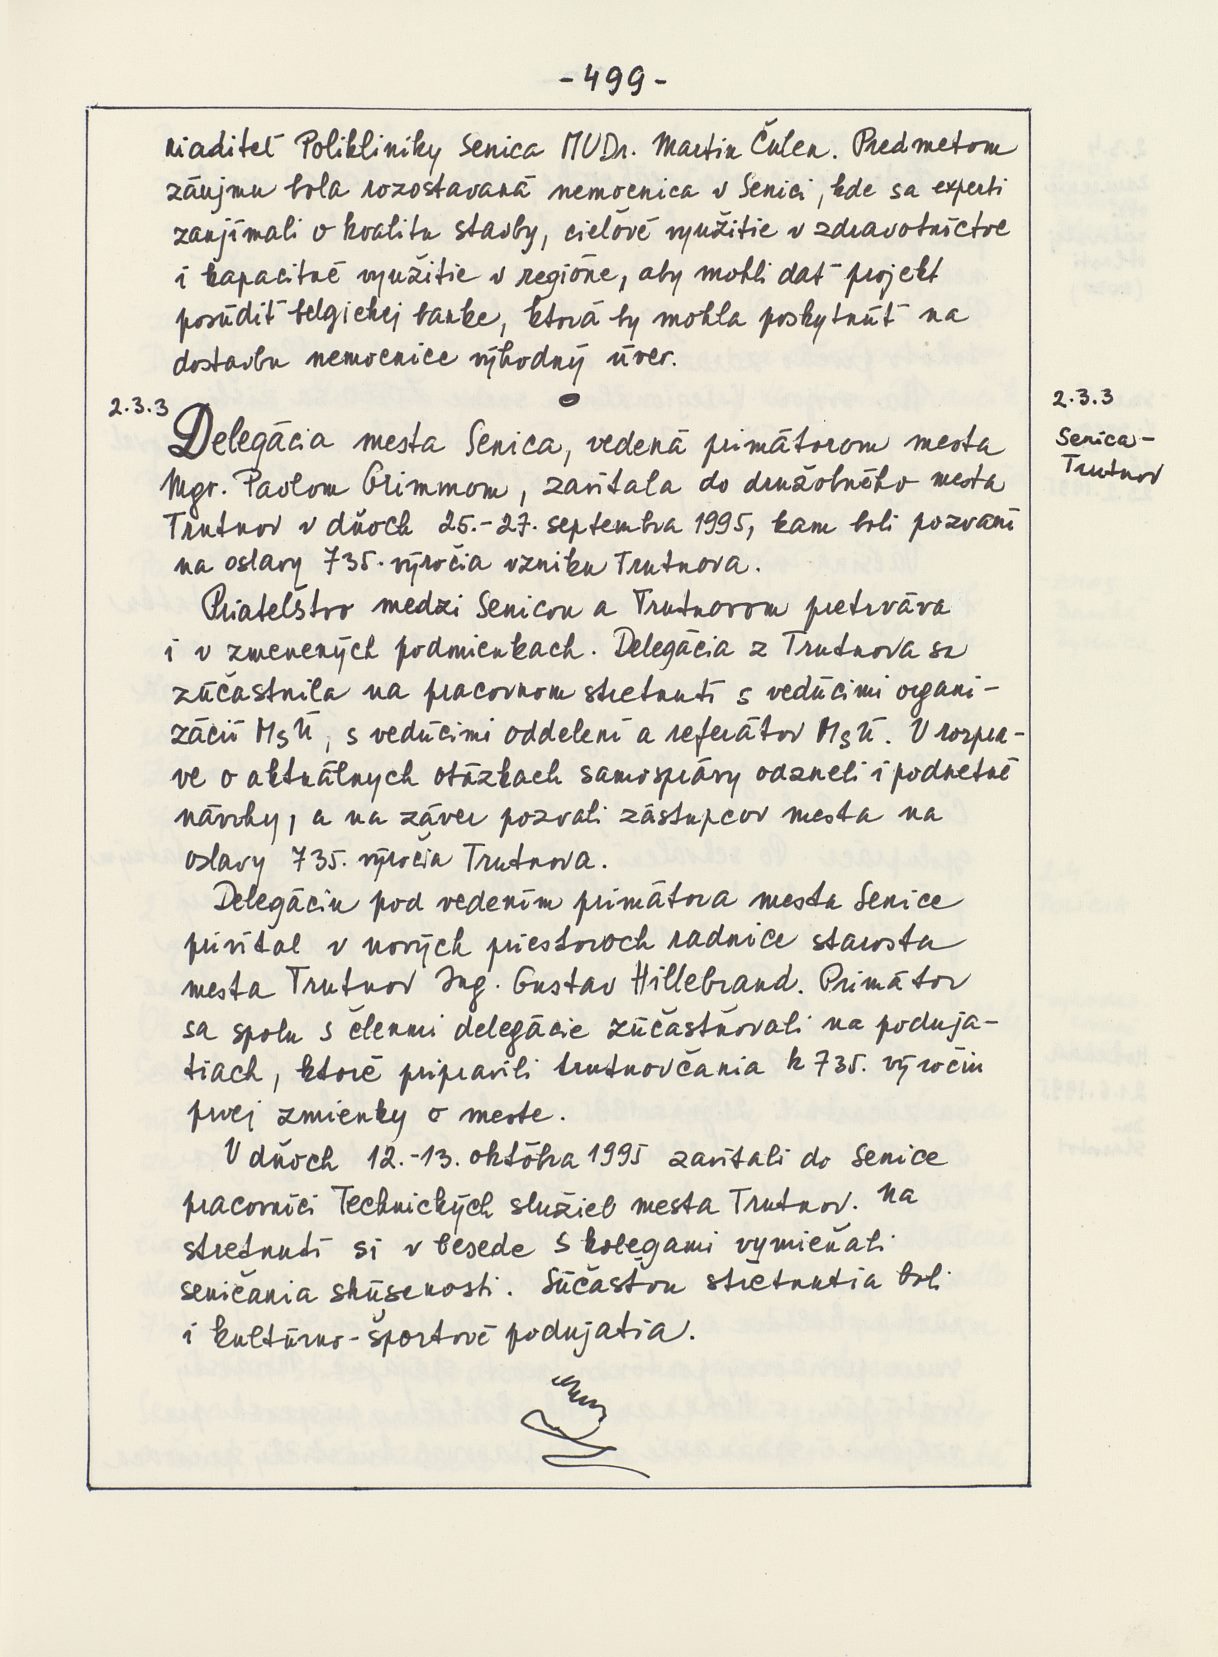 - 499 -
riaditeľ Polikliniky Senica MUDr. Martin Čulen. Predmetom
záujmu bola rozostavaná nemocnica v Senici, kde sa experti
zaujímali o kvalitu stavby, cieľové využitie v zdravotníctve
i kapacitné využitie v regióne, aby mohli dať projekt
posúdiť belgickej banke, ktorá by mohla poskytnúť na
dostavbu nemocnice výhodný úver.
2.3.3
Delegácia mesta Senica, vedená primátorom mesta
Mgr. Pavlom Grimmom, zavítala do družobného mesta
Trutnov v dňoch 25.-27. septembra 1995, kam boli pozvaní
na oslavy 735. výročia vzniku Trutnova.
Priateľstvo medzi Senicou a Trutnovom pretrváva
i v zmenených podmienkach. Delegácia z Trutnova sa
zúčastnila na pracovnom stretnutí s vedúcimi organi-
zácií MsÚ, s vedúcimi oddelení a referátov MsÚ. V rozpra-
ve o aktuálnych otázkach samosprávy odzneli i podnetné
návrhy, a na záver pozvali zástupcov mesta na
oslavy 735. výročia Trutnova.
Delegáciu pod vedením primátora mesta Senice
privítal v nových priestoroch radnice starosta
mesta Trutnov Ing. Gustav Hillebrand. Primátor
sa spolu s členmi delegácie zúčastňovali na poduja-
tiach, ktoré pripravili trutnovčania k 735. výročiu
prvej zmienky o meste.
V dňoch 12.-13. októbra 1995 zavítali do Senice
pracovníci Technických služieb mesta Trutnov. Na
stretnutí si v besede s kolegami vymieňali
seničania skúsenosti. Súčasťou stretnutia boli
i kultúrno-športové podujatia.
2.3.3
Senica-
Trutnov